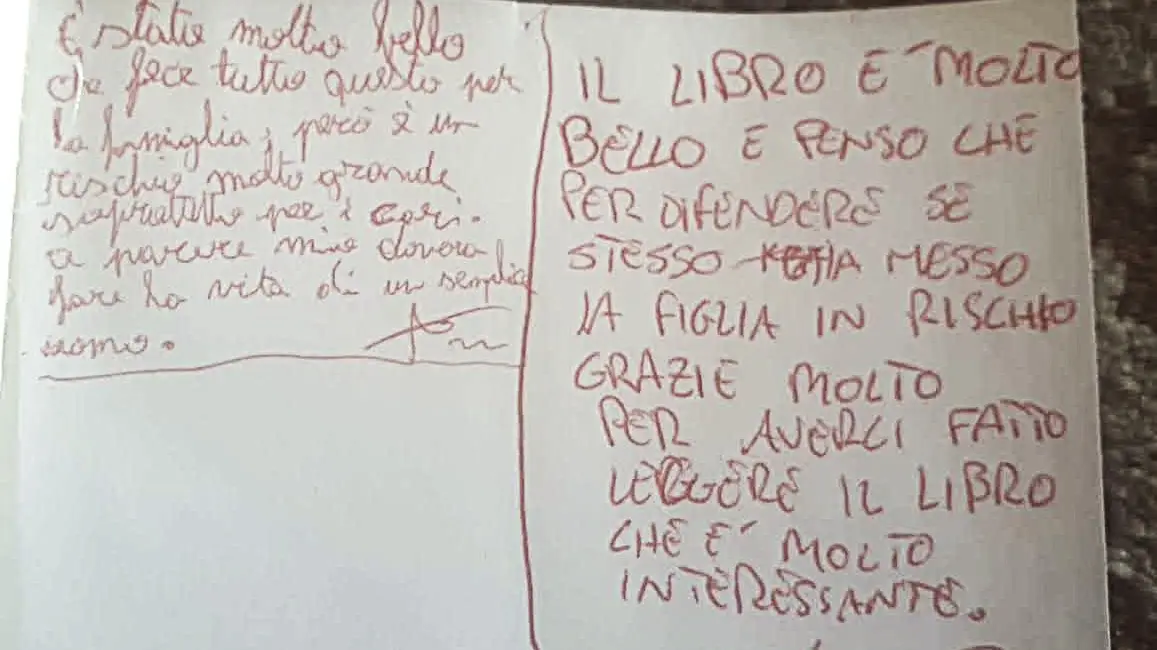 È stato molto bello
che fece tutto questo per
la famiglia, però è un
rischio molto grande
sopratutto per i cari.
a parere mio doveva
fare la vita di un semplice
uomo.
IL LIBRO E´ MOLTO
BELLO E PENSO CHE
PER DIFENDERE SE
STESSO HA MESSO
LA FIGLIA IN RISCHIO
GRAZIE MOLTO
PER AVERCI FATTO
LEGGERE IL LIBRO
CHE E´ MOLTO
INTERESSANTE.